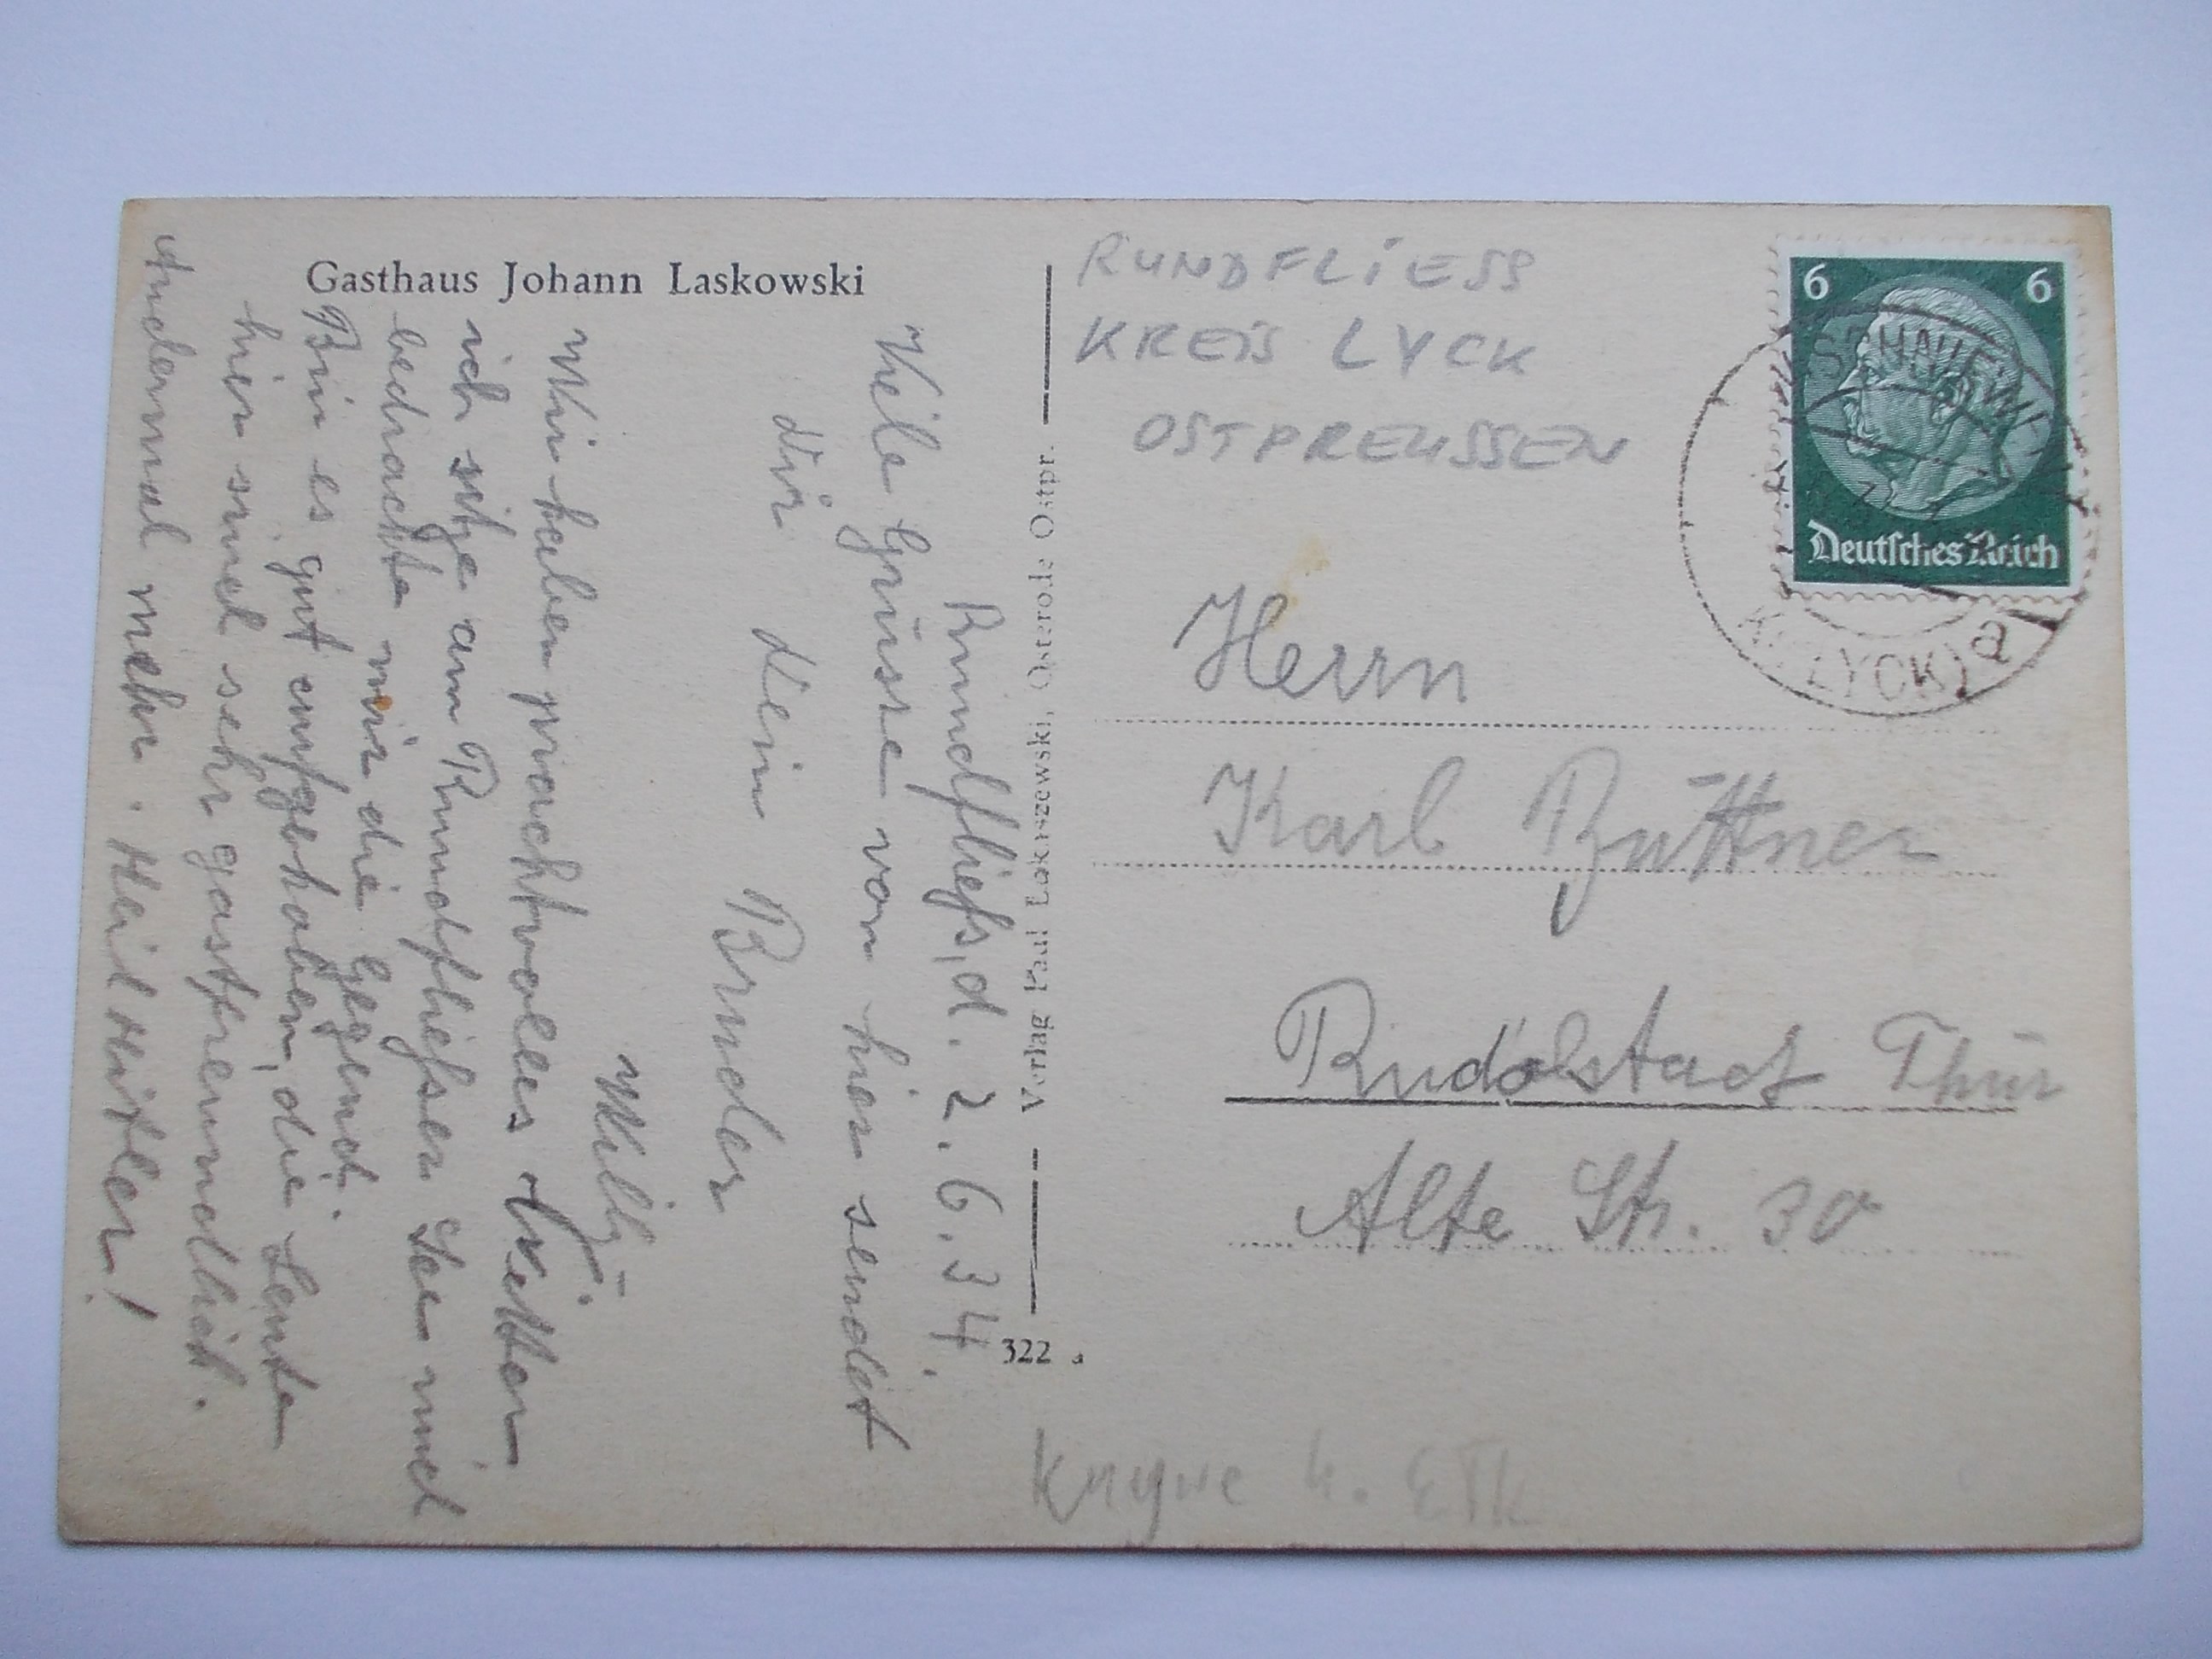 Gasthaus Johann Laskowski
Rundfließ, d. 2. 6. 34.
Viele Grüsse von hier sendet
dir dein Bruder
Willÿ.
Wir haben prachtvolles Wetter
ich sitze am Rundfließer See und
betrachte mir die Gegend.
Bin es gut aufgehoben, die Leute
hier sind sehr gastfreundlich.
Andermal mehr. Heil Hitler!
Verlag Paul Lokuszewski, Osterode Ostpr.
322 a
RUNDFLIESS
KREIS LYCK
OSTPREUSSEN
6 6
Deutsches Reich
LYCK) a
Herrn
Karl Büttner
Rudolstadt Thür
Alte Str. 30